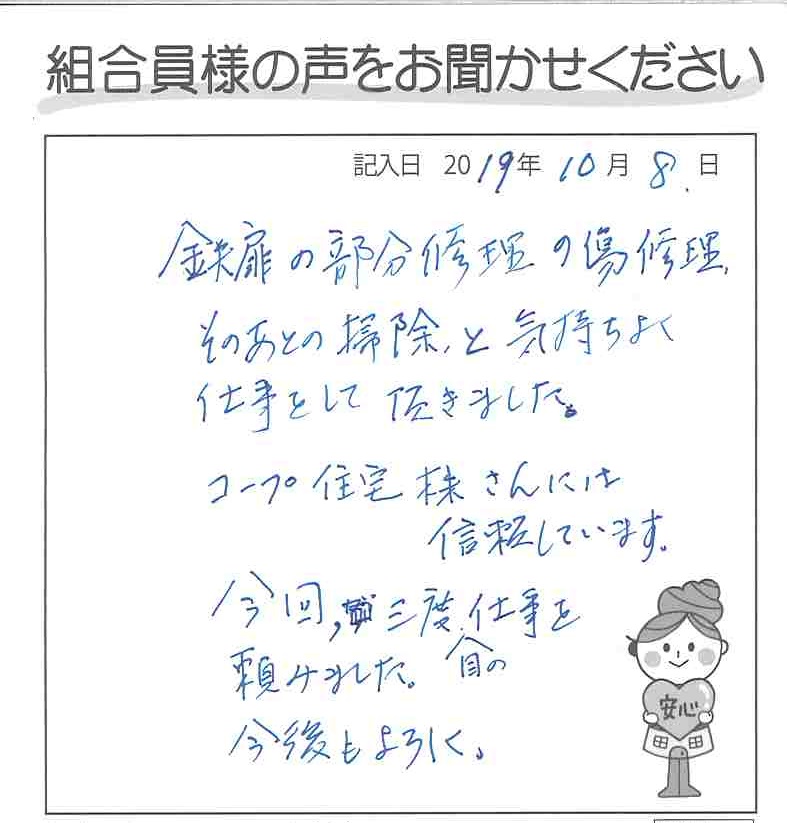 組合員様の声をお聞かせください
記入日 2019年 10月 8日
鉄扉の部分修理の傷修理、
そのあとの掃除、と気持ちよく
仕事をして頂きました。
コープ住宅株さんには
信頼しています。
今回、三度目の仕事を
頼みました。
今後もよろしく。
安心